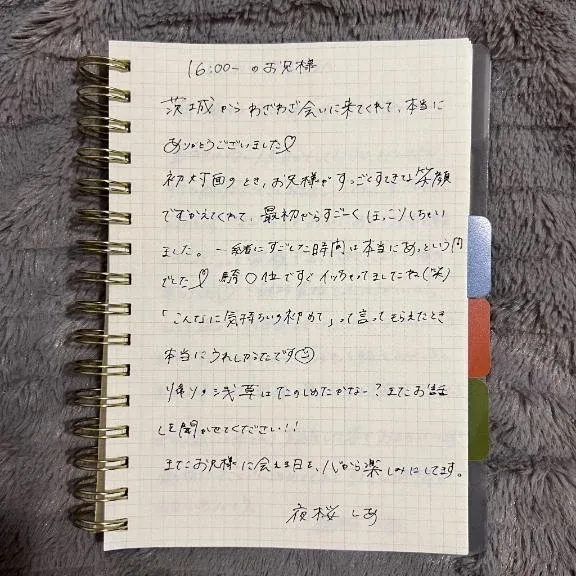 16:00〜のお兄様
茨城からわざわざ会いに来てくれて、本当に
ありがとうございました♡
初対面のとき、お兄様がすっごくすてきな笑顔
でむかえてくれて、最初からすごーくほっこりしちゃい
ました。一緒にすごした時間は本当にあっという間
でした♡ 騎〇位ですぐイッちゃってましたね(笑)
「こんなに気持ちいの初めて」って言ってもらえたとき
本当にうれしかったです☺
帰りの浅草はたのしめたかな〜?またお話
しを聞かせてください!!
またお兄様に会える日を、心から楽しみにしてます。
夜桜 しあ